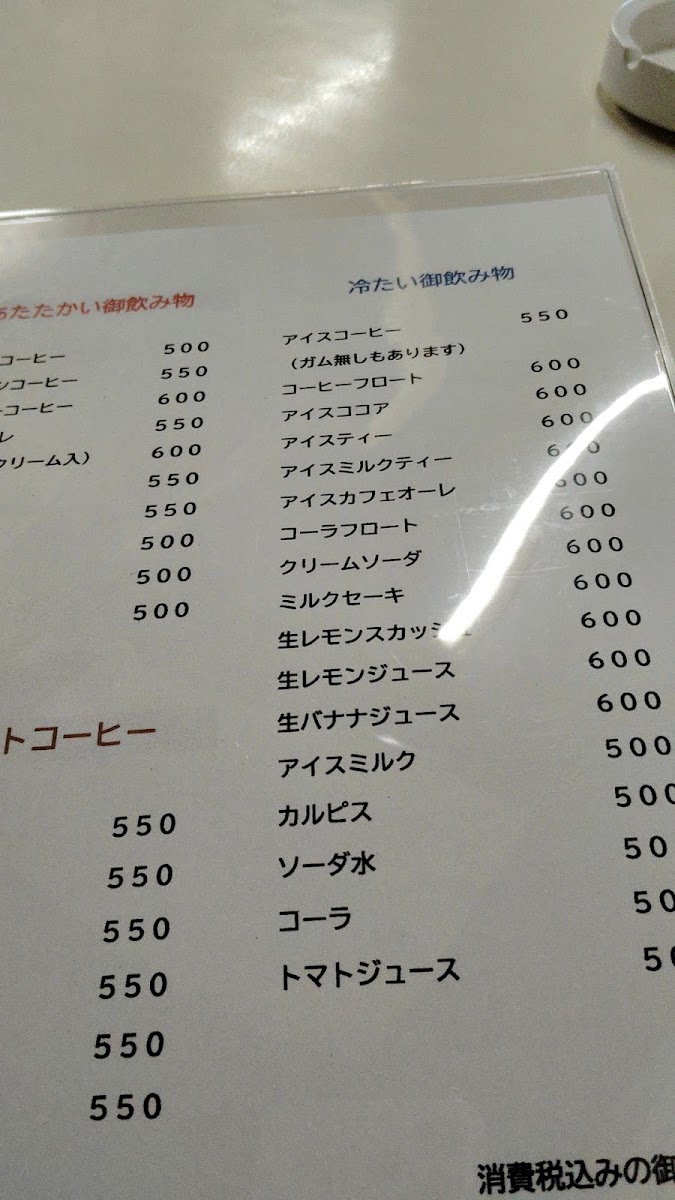 あたたかい御飲み物
コーヒー 500
ンコーヒー 550
ーコーヒー 600
レ 550
クリーム入） 600
550
550
500
500
500
トコーヒー
550
550
550
550
550
550
冷たい御飲み物
アイスコーヒー 550
（ガム無しもあります）
コーヒーフロート 600
アイスココア 600
アイスティー 600
アイスミルクティー 600
アイスカフェオーレ 600
コーラフロート 600
クリームソーダ 600
ミルクセーキ 600
生レモンスカッシュ 600
生レモンジュース 600
生バナナジュース 600
アイスミルク 500
カルピス 500
ソーダ水 50
コーラ 50
トマトジュース 5
消費税込みの御